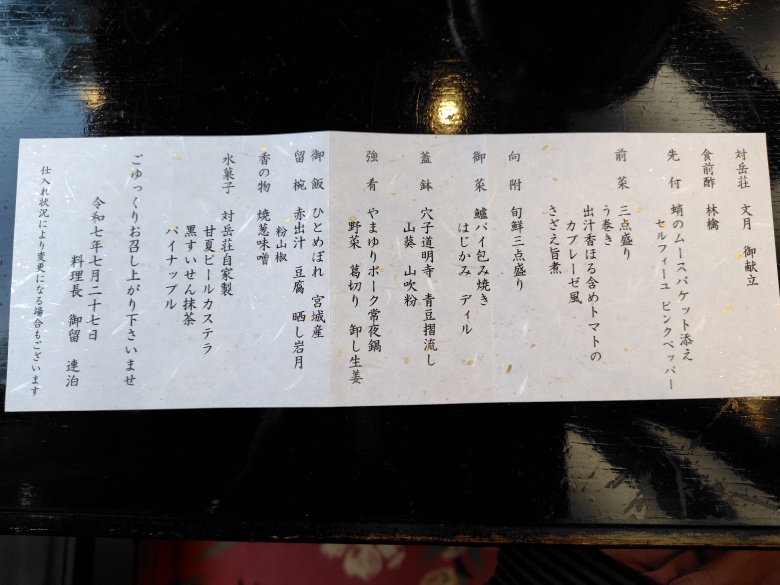 対岳荘　文月　御献立
食前酢　林檎
先付　蛸のムースバケット添え
セルフィーユ　ピンクペッパー
前菜　三点盛り
う巻き
出汁香ほる含めトマトの
カプレーゼ風
さざえ旨煮
向附　旬鮮三点盛り
御菜　鱸パイ包み焼き
はじかみ　ディル
蓋鉢　穴子道明寺　青豆摺流し
山葵　山吹粉
強肴　やまゆりポーク常夜鍋
野菜　葛切り　卸し生姜
御飯　ひとめぼれ　宮城産
留椀　赤出汁　豆腐　晒し岩月
粉山椒
香の物　焼葱味噌
水菓子　対岳荘自家製
甘夏ピールカステラ
黒すいせん抹茶
パイナップル
ごゆっくりお召し上がり下さいませ
令和七年七月二十七日
料理長　御留　連泊
仕入れ状況により変更になる場合もございます